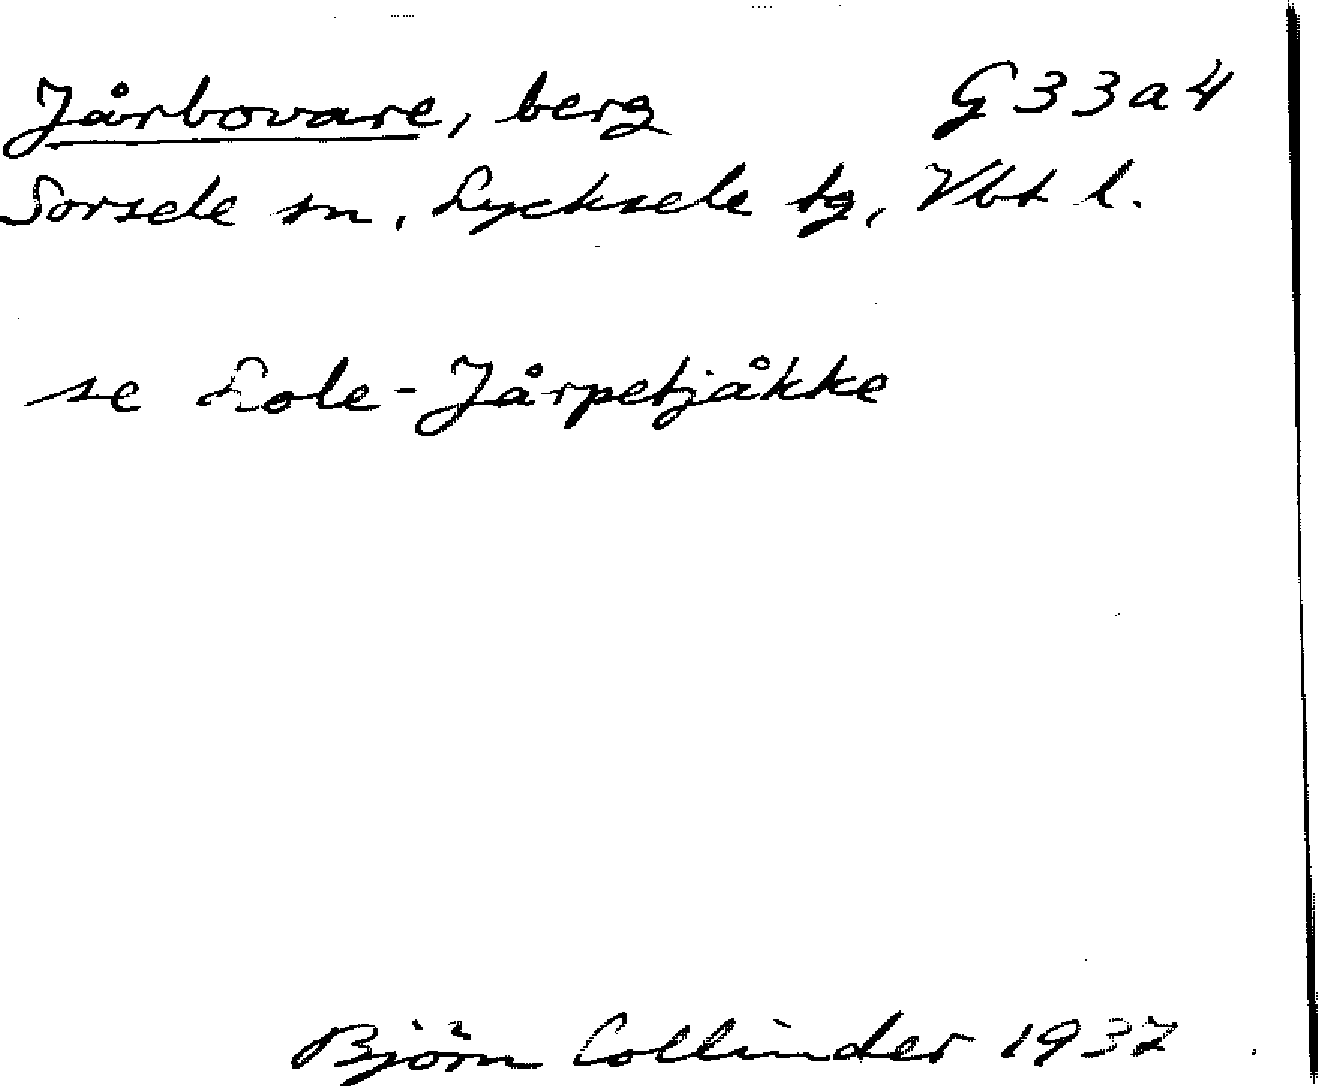 Jårbovare, berg G33a4
Sorsele sn, Lycksele tg, Vbt l.
se Lole-Jårpetjåkke
Björn Collinder 1937